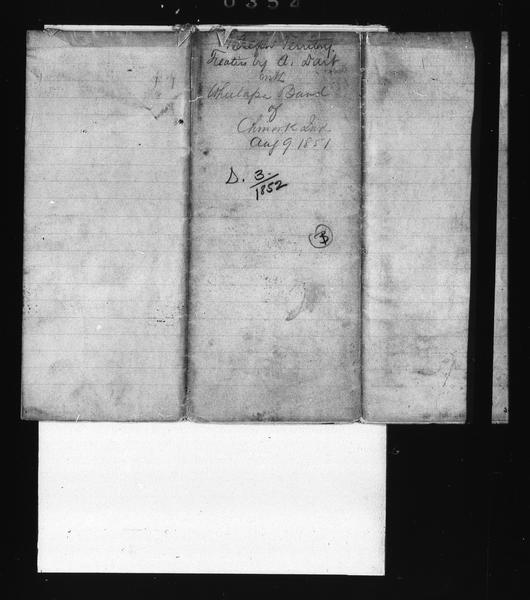 0352
Oregon Territory.
Treaties by A. Dart
with
Wheelapa Band
of
Chinook Ind
Aug 9. 1851
D. 3-
1852
3